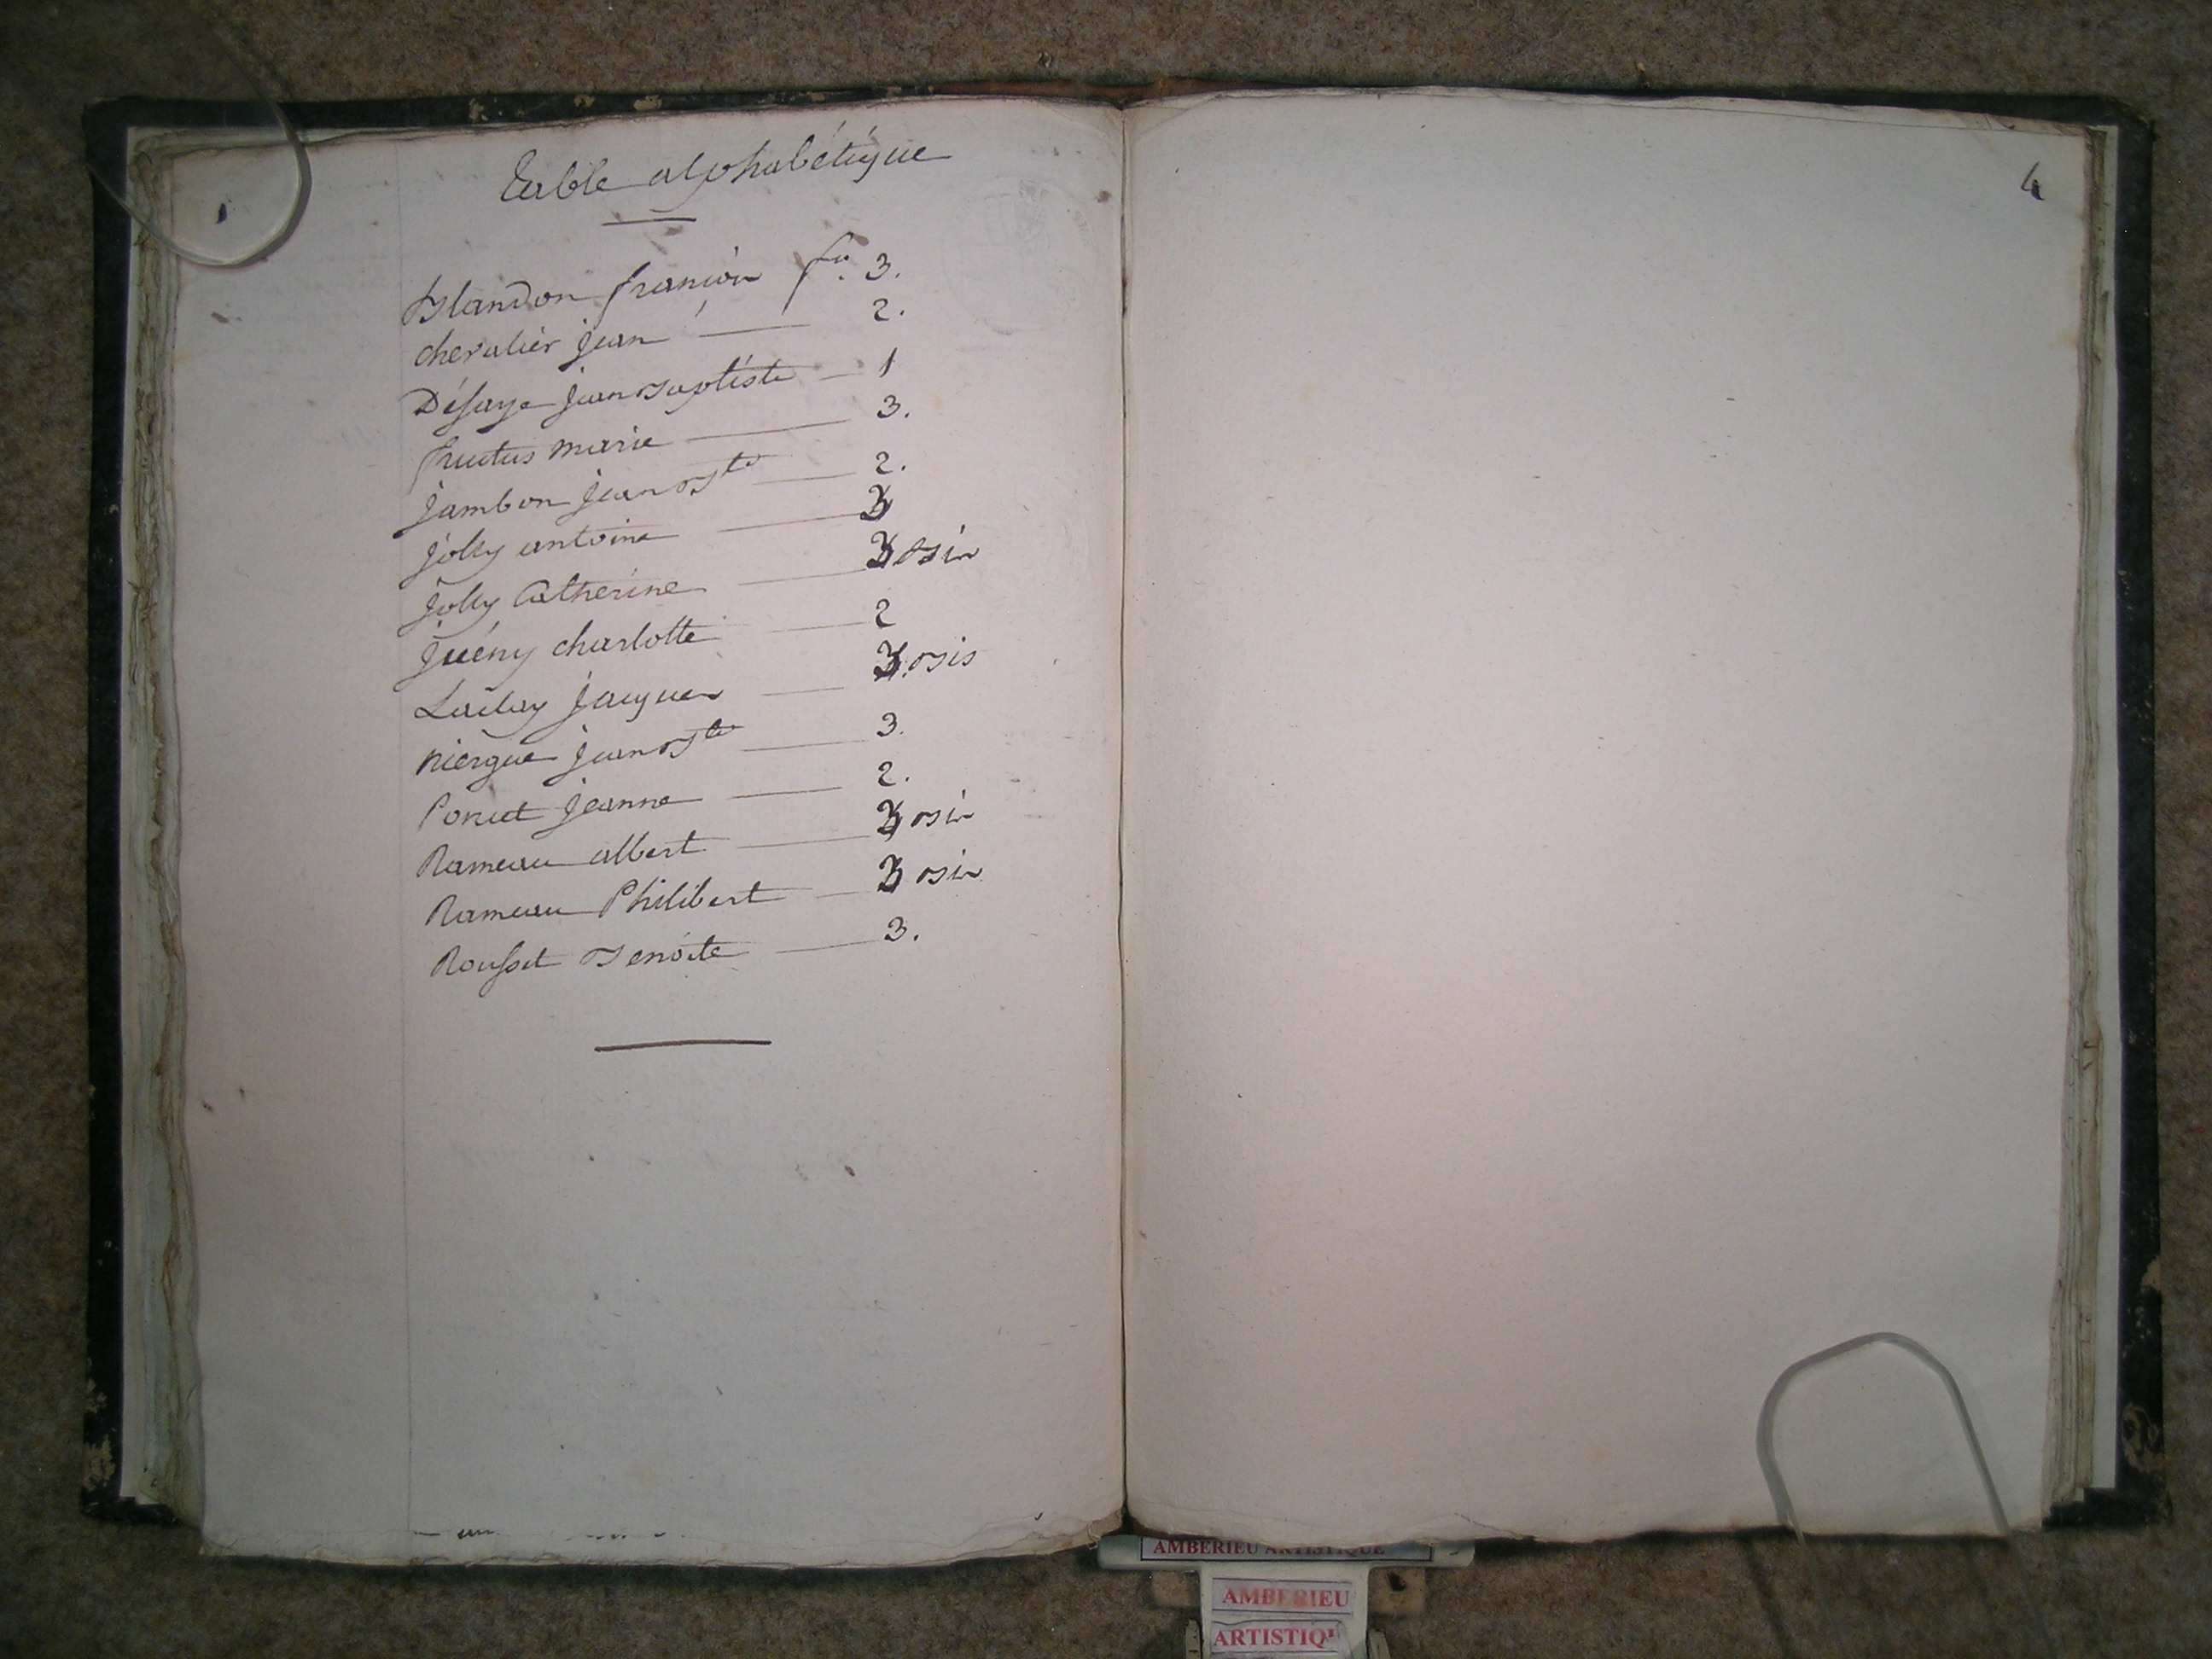 table alphabétique
Blandon françois f.o 3.
chevalier jean 2.
Désaye jean Baptiste 1
fructus marie 3.
jambon jean Bte 2.
jolly antoine 3
jolly Catherine 3 Bis
juény charlotte 2
Laclay jacques 3. Bis
niergue jean Bte 3.
Ponut jeanne 2.
Rameau albert 3 Bis
Rameau Philibert 3 Bis
Rousset Benoite 3.
4
AMBERIEU ARTISTIQUE
AMBERIEU
ARTISTIQU